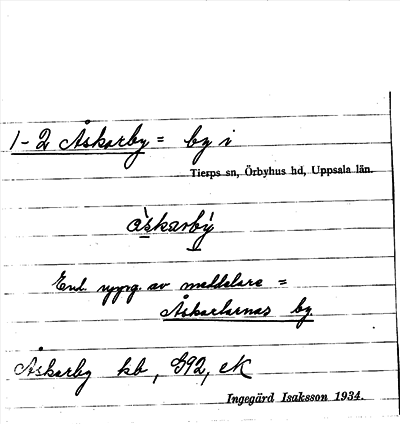 1-2 Åskarby = by i
Tierps sn, Örbyhus hd, Uppsala län.
åskarby
Enl. uppg. av meddelare =
Åskarlarnas by.
Åskarby kb, G92, eK
Ingegärd Isaksson 1934.